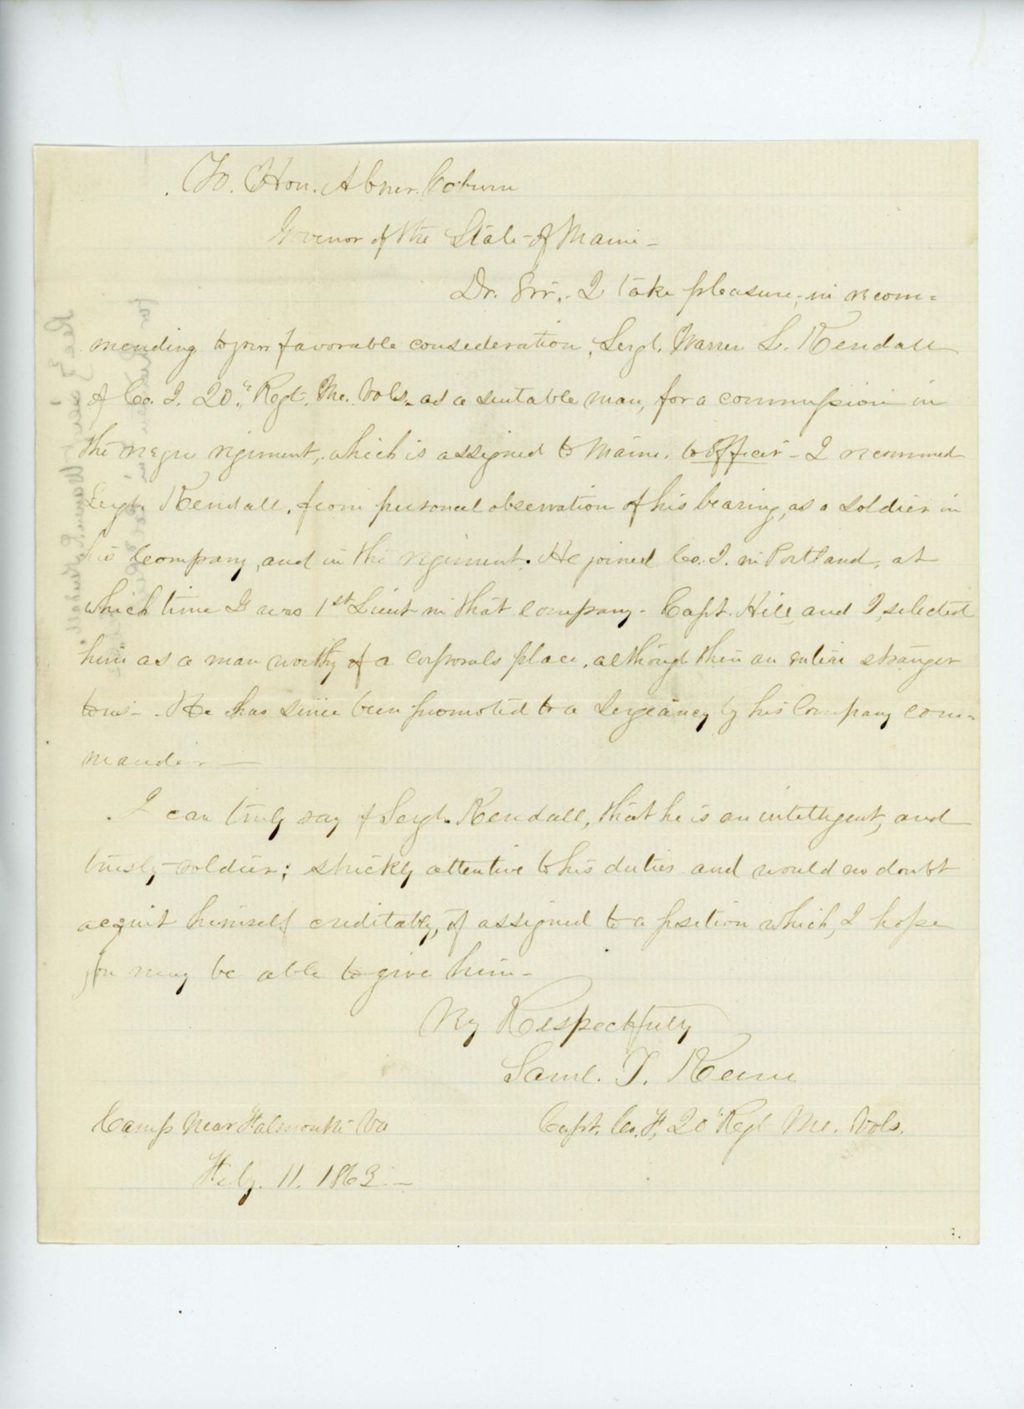 To. Hon. Abner. Coburn
Govenor of the State of Maine -
Dr. Sir,- I take pleasure, in recom=
mending to your favorable consideration, Sergt. Warren L. Kendall
of Co. I. 20." Regt. Me. Vols. as a suitable man, for a commission in
the negro regiment, which is assigned to Maine. to officer - I recommed
Sergt. Kendall, from personal observation of his bearing, as a soldier in
his Company, and in the regiment. He joined Co. I. in Portland, at
which time I was 1st Lieut in that company - Capt. Hill, and I, selected
him as a man worthy of a corporals place, although then an entire stranger
to us - He has since been promoted to a Sergeancy by his Company com=
mander -
I can truly say of Sergt. Kendall, that he is an intelligent, and
trusty soldier; strickly attentive to his duties and would no doubt
acquit himself creditably, if assigned to a position which, I hope
you may be able to give him -
Vry Respectfully
Saml. T. Keene
Capt. Co. F, 20" Regt Me. Vols.
Camp Near Falmouth Va
Feby. 11. 1863 -